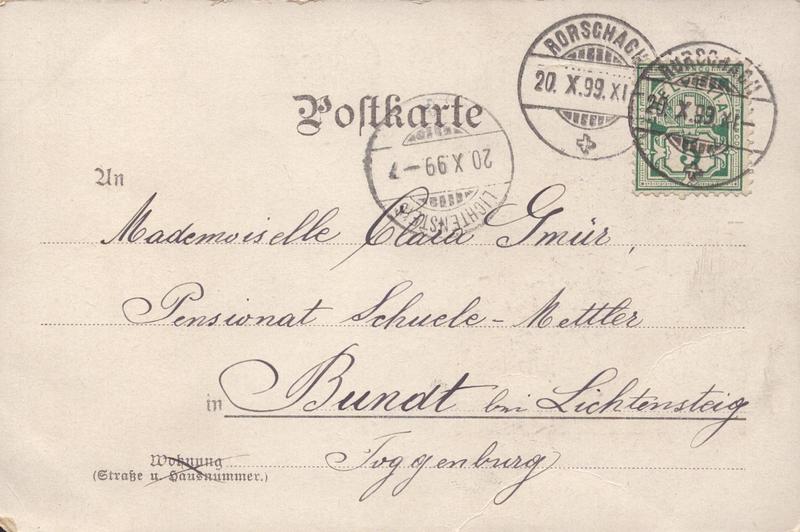 RORSCHACH
20. X.99. XI
RORSCHACH
20. X.99. XI
HELVETIA
5
Postkarte
LICHTENSTEIG
20. X 99 - 7
An
Mademoiselle Clara Gmür,
Pensionat Schuele-Mettler
in Bundt bei Lichtensteig
Wohnung
Toggenburg
(Straße u. Hausnummer.)